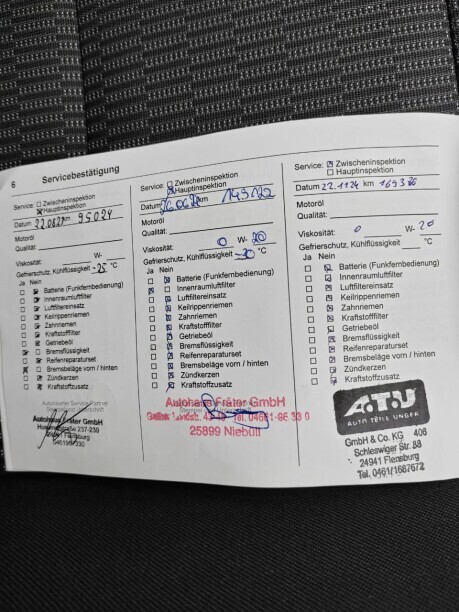 6 Servicebestätigung
Service: Zwischeninspektion
Hauptinspektion
Datum km 95024
Motoröl
Qualität:
Viskosität: W-
Gefrierschutz, Kühlflüssigkeit -25 °C
Ja Nein
Batterie (Funkfernbedienung)
Innenraumluftfilter
Luftfiltereinsatz
Keilrippenriemen
Zahnriemen
Kraftstofffilter
Getriebeöl
Bremsflüssigkeit
Reifenreparaturset
Bremsbeläge vorn / hinten
Zündkerzen
Kraftstoffzusatz
Autorisierter Service Partner
Stempel und Unterschrift
Autohaus Fräter GmbH
237-239
Flensburg
Service: Zwischeninspektion
Hauptinspektion
Datum km
Motoröl
Qualität:
Viskosität: 0 W- 20
Gefrierschutz, Kühlflüssigkeit -30 °C
Ja Nein
Batterie (Funkfernbedienung)
Innenraumluftfilter
Luftfiltereinsatz
Keilrippenriemen
Zahnriemen
Kraftstofffilter
Getriebeöl
Bremsflüssigkeit
Reifenreparaturset
Bremsbeläge vorn / hinten
Zündkerzen
Kraftstoffzusatz
Autohaus Fräter GmbH
25899 Niebüll
Service: Zwischeninspektion
Hauptinspektion
Datum 22.11.24 km
Motoröl
Qualität:
Viskosität: 0 W- 20
Gefrierschutz, Kühlflüssigkeit °C
Ja Nein
Batterie (Funkfernbedienung)
Innenraumluftfilter
Luftfiltereinsatz
Keilrippenriemen
Zahnriemen
Kraftstofffilter
Getriebeöl
Bremsflüssigkeit
Reifenreparaturset
Bremsbeläge vorn / hinten
Zündkerzen
Kraftstoffzusatz
A.T.U
AUTO TEILE UNGER
GmbH & Co. KG 406
Schleswiger Str. 88
24941 Flensburg
Tel. 0461/1687672